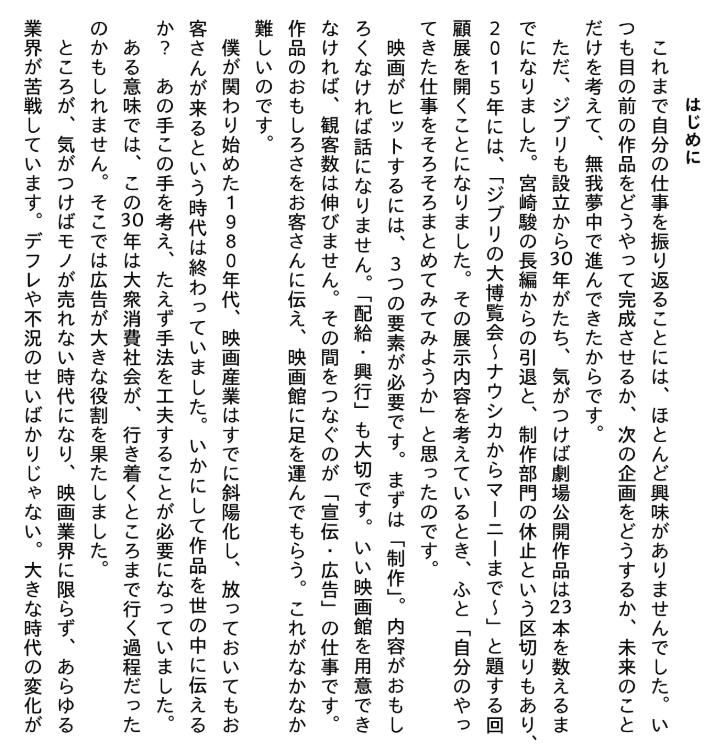 はじめに
　これまで自分の仕事を振り返ることには、ほとんど興味がありませんでした。い
つも目の前の作品をどうやって完成させるか、次の企画をどうするか、未来のこと
だけを考えて、無我夢中で進んできたからです。
　ただ、ジブリも設立から30年がたち、気がつけば劇場公開作品は23本を数えるま
でになりました。宮崎駿の長編からの引退と、制作部門の休止という区切りもあり、
2015年には、「ジブリの大博覧会〜ナウシカからマーニーまで〜」と題する回
顧展を開くことになりました。その展示内容を考えているとき、ふと「自分のやっ
てきた仕事をそろそろまとめてみてみようか」と思ったのです。
　映画がヒットするには、3つの要素が必要です。まずは「制作」。内容がおもし
ろくなければ話になりません。「配給・興行」も大切です。いい映画館を用意でき
なければ、観客数は伸びません。その間をつなぐのが「宣伝・広告」の仕事です。
作品のおもしろさをお客さんに伝え、映画館に足を運んでもらう。これがなかなか
難しいのです。
　僕が関わり始めた1980年代、映画産業はすでに斜陽化し、放っておいてもお
客さんが来るという時代は終わっていました。いかにして作品を世の中に伝える
か？　あの手この手を考え、たえず手法を工夫することが必要になっていました。
　ある意味では、この30年は大衆消費社会が、行き着くところまで行く過程だった
のかもしれません。そこでは広告が大きな役割を果たしました。
　ところが、気がつけばモノが売れない時代になり、映画業界に限らず、あらゆる
業界が苦戦しています。デフレや不況のせいばかりじゃない。大きな時代の変化が